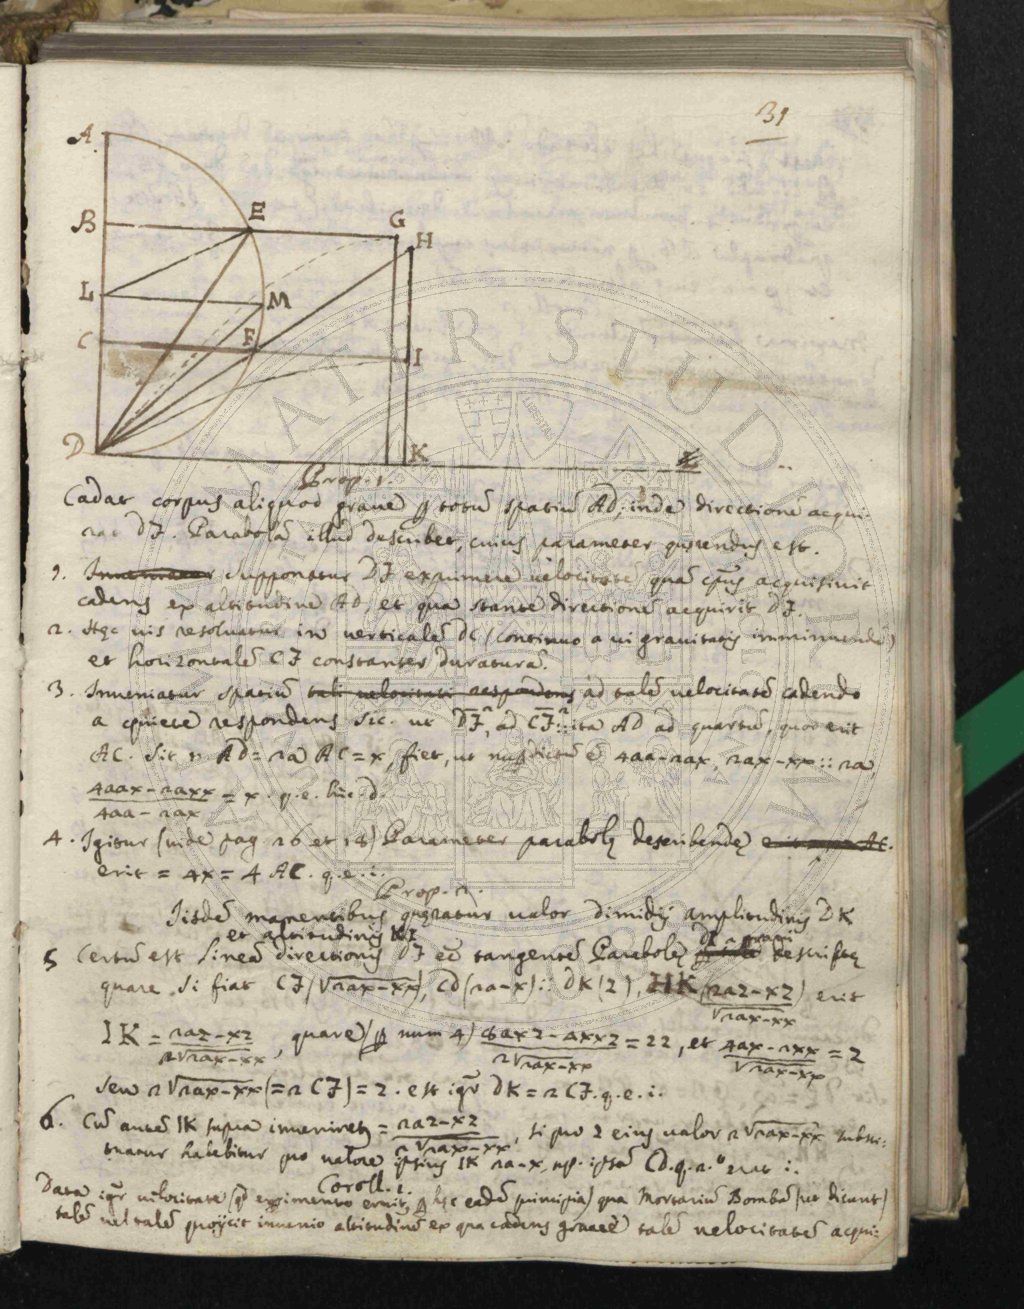 31
A
B
E
G
H
L
M
C
F
I
D
K
Prop. 1.
Cadat corpus aliquod grave p totũ spatiũ AD, inde directionẽ acqui-
rat DF. Parabolã illud describet, cuius parameter querendus est.
1. Supponatur DF exprimere velocitatẽ quã acquisivit
cadens ex altitudine AD, et qua stante directionẽ acquirit DF.
2. Hęc vis resolvatur in verticalẽ DC (continuo a vi gravitatis imminuendã)
et horizontalẽ CF constanter duraturã.
3. Inveniatur spatiũ tali velocitati respondens ad talẽ velocitatẽ cadendo
a quiete respondens sic. ut DF², ad CF² :: ita AD ad quartũ, quod erit
AC. Sit n. AD = 2a AC = x, fiet, ut 4aa-2ax, 2ax-xx :: 2a,
4aax-2axx / 4aa-2ax = x. q.e. d.
4. Igitur (vide pag 16 et 18) Parameter parabolę describendę erit AC.
erit = 4x = 4 AC. q.e.i.
Prop. 2.
Iisdẽ manentibus quęratur valor dimidij amplitudinis DK
et altitudinis KI
5 Certũ est lineã directionis DF eẽ tangentẽ Parabolę descriptę
quare si fiat CF (√2ax-xx), CD (2a-x) :: DK (z), HK (2az-xz / √2ax-xx) erit
IK = 2az-xz / 2√2ax-xx, quare (p num 4) 8axz-4xxz / 2√2ax-xx = zz, et 4ax-2xx / √2ax-xx = z
seu 2√2ax-xx (= 2 CF) = z. est igr DK = 2 CF. q.e.i.
6. Cũ autẽ IK supra inveniretr = 2az-xz / 2√2ax-xx, si pro z eius valor 2√2ax-xx substi-
tuatur habebitur pro valore ipsius IK 2a-x, ipsã CD. q. erat i.
Coroll. 1.
Data igr velocitate (p experimento eruitr, p hęc eadẽ principia) qua Mortariũ Bombã (ut dicunt)
talẽ vel talẽ proijcit invenio altitudinẽ ex qua cadens grave talẽ velocitatẽ acqui-